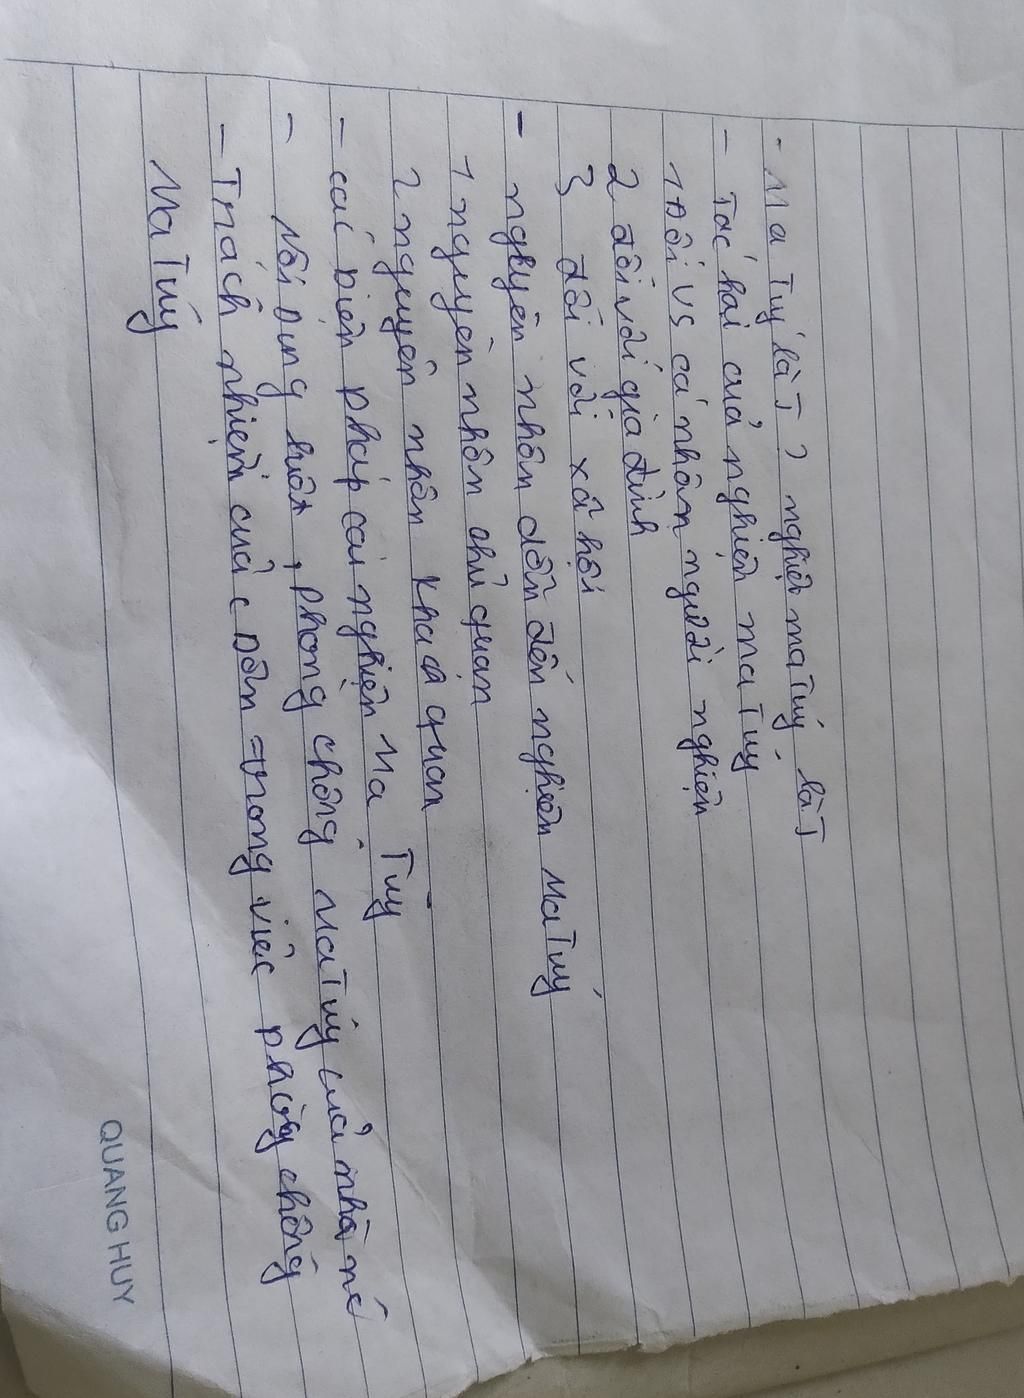 - Ma Tuý là T ? nghiện ma Tuý là T
- Tác hại của nghiện ma Tuý
1 Đối vs cá nhân người nghiện
2 đối với gia đình
3 đối với xã hội
- nguyên nhân dẫn đến nghiện Ma Tuý
1 nguyên nhân chủ quan
2 nguyên nhân khách quan
- cai biện pháp cai nghiện Ma Tuý
- Nôi Dung luật, phong chống Ma Tuý của nhà nc
- Trách nhiệm của c Dân trong việc phòng chống
Ma Tuý
QUANG HUY